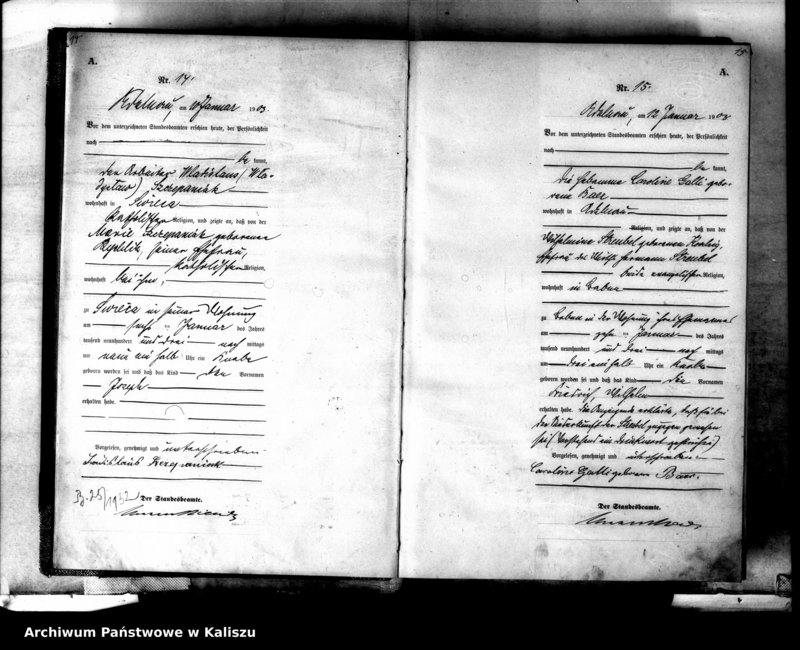 14
A.
Nr. 14.
am 10 Januar 1903.
Vor dem unterzeichneten Standesbeamten erschien heute, der Persönlichkeit
nach
be kannt,
der Arbeiter Wladislaus (Wla-
dyslaw) Szczepaniak
wohnhaft in
katholischer Religion, und zeigte an, daß von der
Marie Szczepaniak geborenen
seiner Ehefrau,
katholischer Religion,
wohnhaft bei ihm,
zu in seiner Wohnung
am Januar des Jahres
tausend neunhundert und drei nach mittags
um neun ein halb Uhr ein Knabe
geboren worden sei und daß das Kind den Vornamen
Joseph
erhalten habe.
Vorgelesen, genehmigt und unterschrieben
B. 25/1952
Der Standesbeamte.
15
A.
Nr. 15.
am 12 Januar 1903
Vor dem unterzeichneten Standesbeamten erschien heute, der Persönlichkeit
nach
be kannt,
die Hebamme Caroline Galli gebo-
rene Baer
wohnhaft in Adelnau
Religion, und zeigte an, daß von der
Wilhelmine Strenbel geborenen
Ehefrau des Hermann Strenbel
beide evangelischer Religion,
wohnhaft in
zu in der Wohnung ihres Ehemannes
am zehn Januar des Jahres
tausend neunhundert und drei nach mittags
um drei ein halb Uhr ein Knabe
geboren worden sei und daß das Kind die Vornamen
Friedrich, Wilhelm
erhalten habe. Die Anzeigende erklärte, daß sie bei
der Niederkunft der zugegen gewesen
sei (Vorstehend ein Druckwort gestrichen)
Vorgelesen, genehmigt und unterschrieben
Caroline Galli geborene Baer.
Der Standesbeamte.
Archiwum Państwowe w Kaliszu